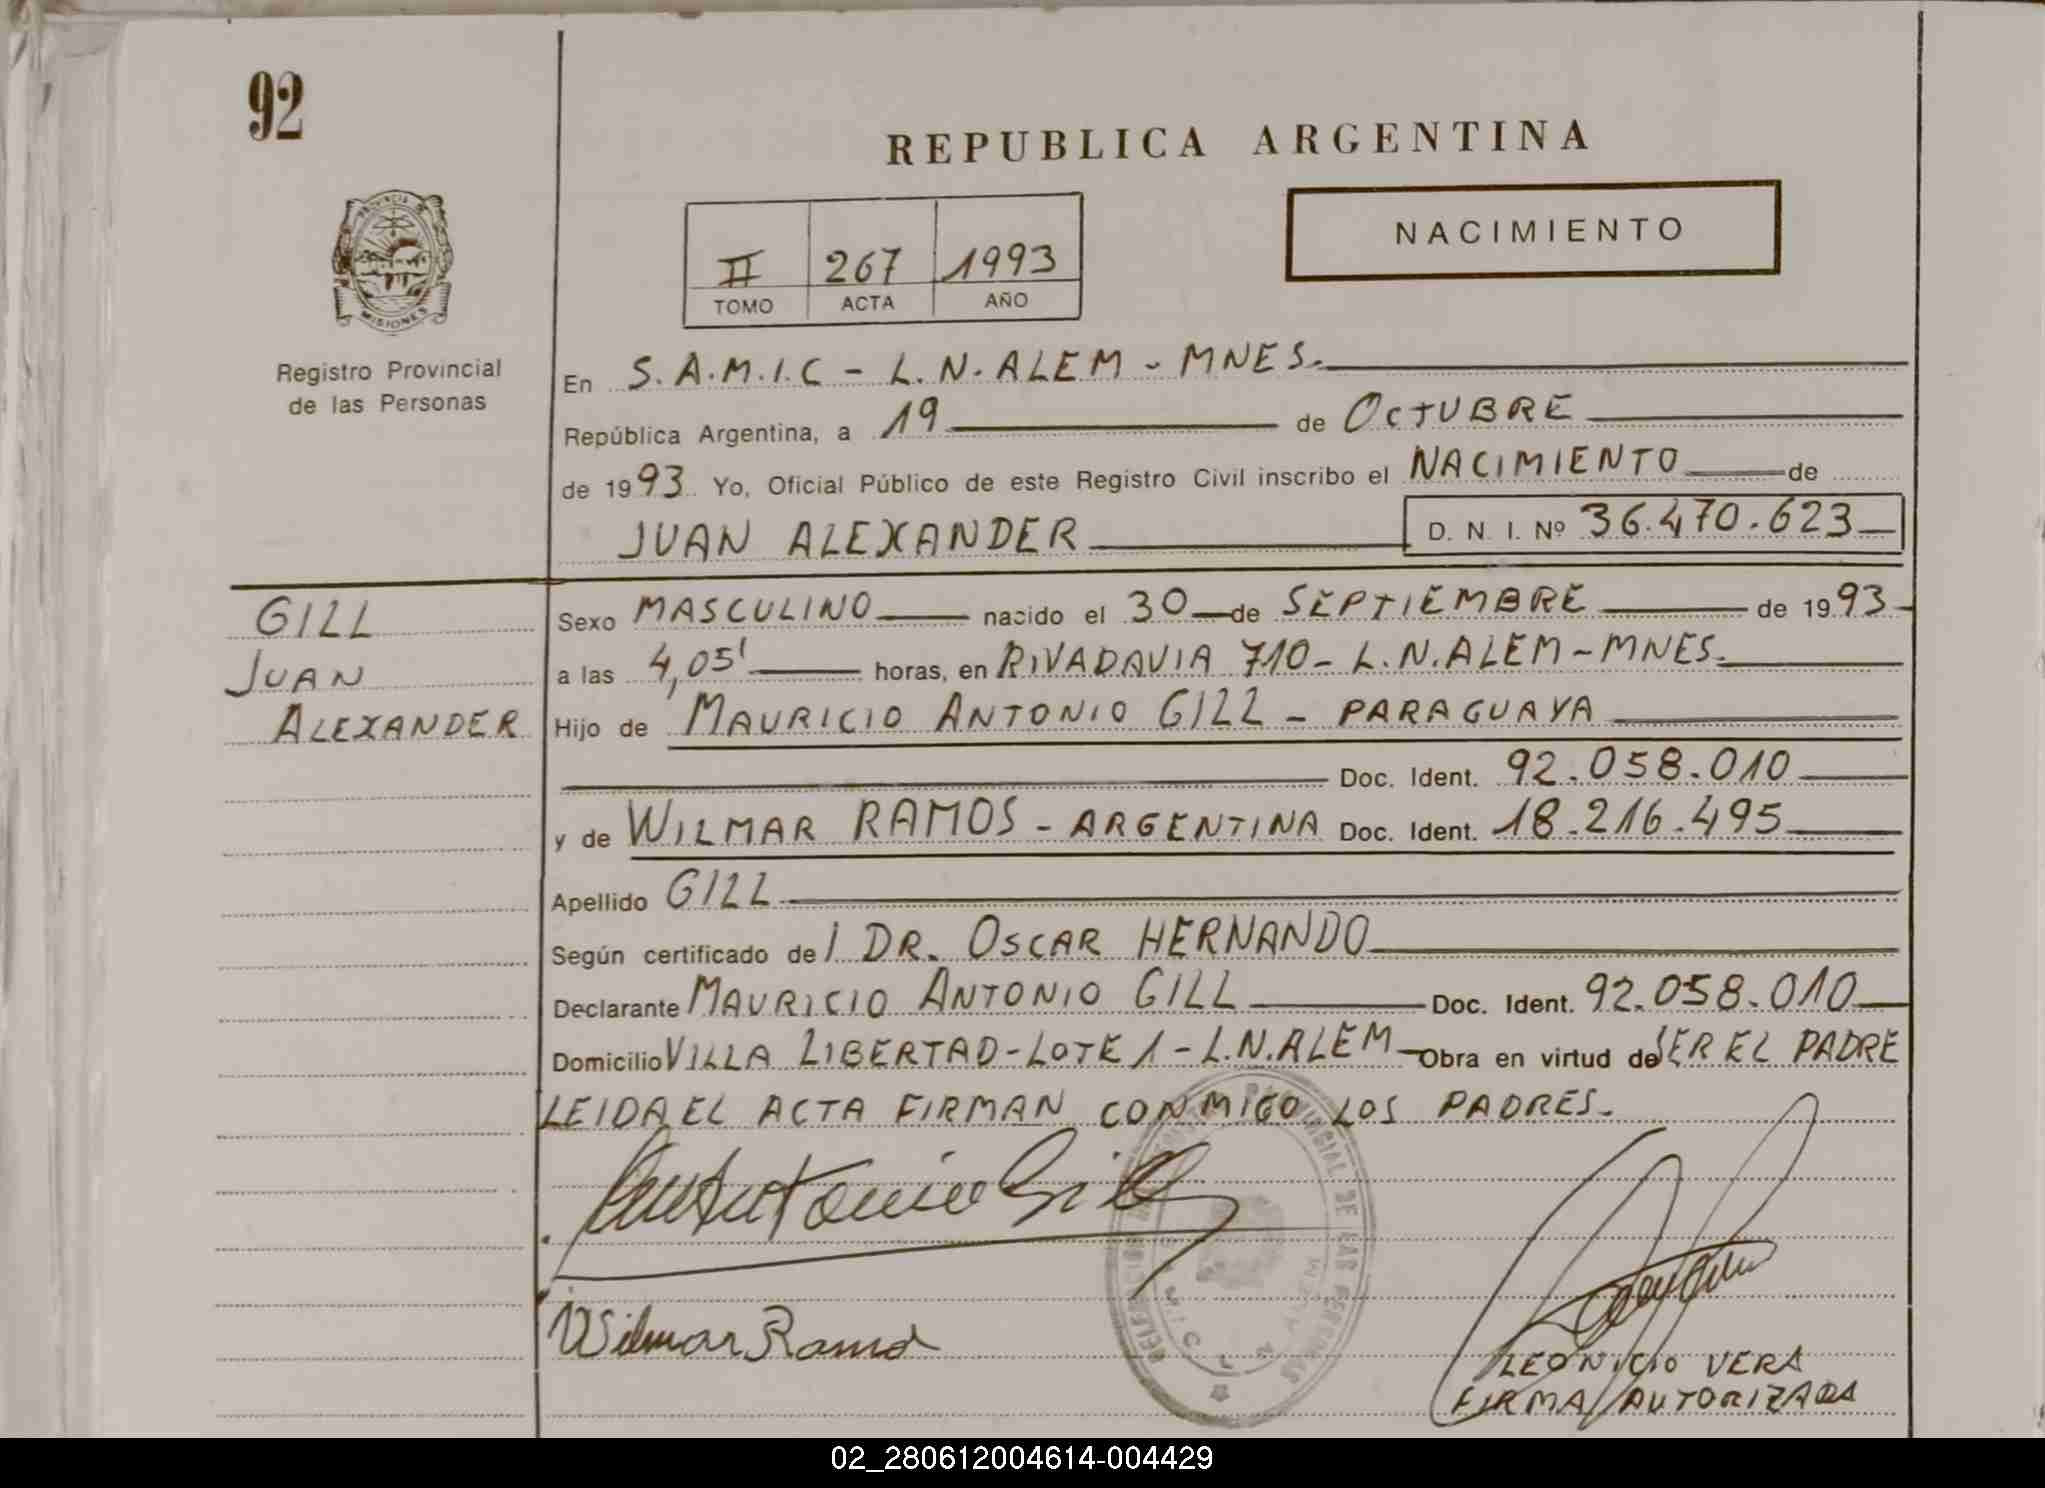 92
REPUBLICA ARGENTINA
PROVINCIA DE
MISIONES
II 267 1993
TOMO ACTA AÑO
NACIMIENTO
Registro Provincial
de las Personas
En S.A.M.I.C - L.N.ALEM - MNES.
República Argentina, a 19 de OCTUBRE
de 1993 Yo, Oficial Público de este Registro Civil inscribo el NACIMIENTO de
JUAN ALEXANDER D. N. I. Nº 36.470.623
GILL
JUAN
ALEXANDER
Sexo MASCULINO nacido el 30 de SEPTIEMBRE de 1993
a las 4,05' horas, en RIVADAVIA 710 - L.N.ALEM - MNES.
Hijo de MAURICIO ANTONIO GILL - PARAGUAYA
Doc. Ident. 92.058.010
y de WILMAR RAMOS - ARGENTINA Doc. Ident. 18.216.495
Apellido GILL
Según certificado del DR. OSCAR HERNANDO
Declarante MAURICIO ANTONIO GILL Doc. Ident. 92.058.010
Domicilio VILLA LIBERTAD - LOTE 1 - L.N.ALEM - Obra en virtud de SER EL PADRE
LEIDA EL ACTA FIRMAN CONMIGO LOS PADRES.
Antonio Gill
Wilmar Ramos
PROVINCIAL DE LAS PERSONAS
ALEM
LEONICIO VERA
FIRMA AUTORIZADA
02_280612004614-004429